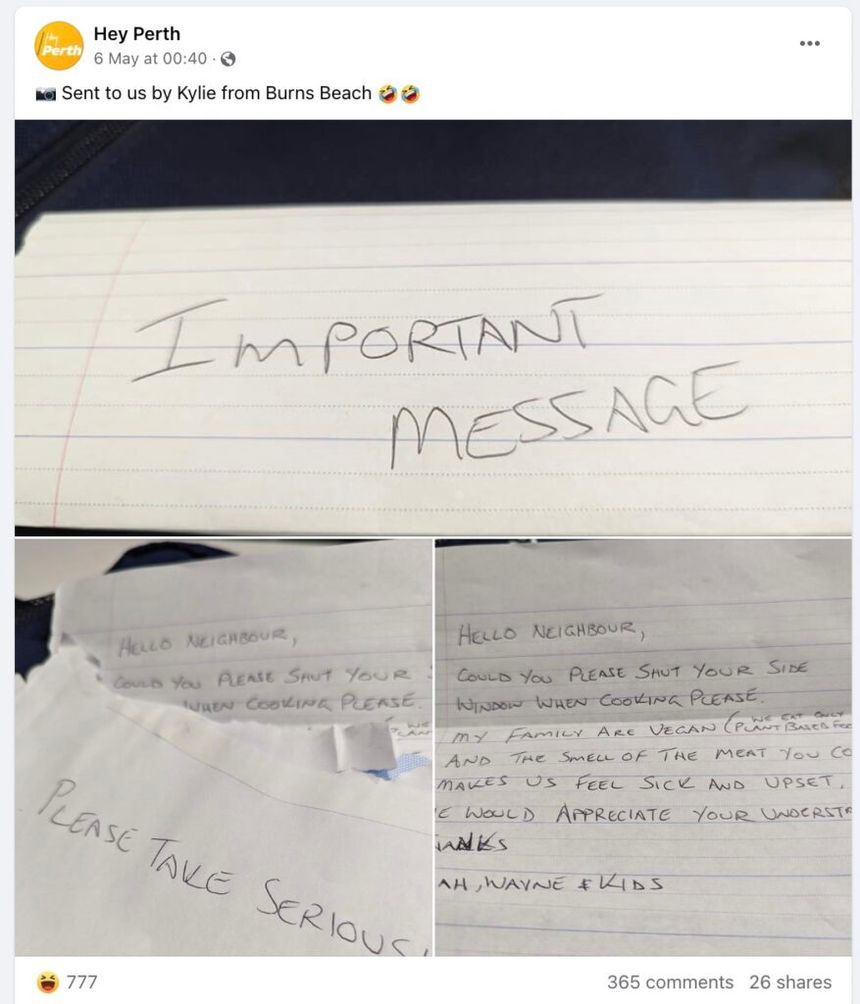 Hey Perth
Hey Perth
6 May at 00:40
Sent to us by Kylie from Burns Beach
IMPORTANT
MESSAGE
HELLO NEIGHBOUR,
COULD YOU PLEASE SHUT YOUR
WINDOW WHEN COOKING PLEASE.
PLEASE TAKE SERIOUS
HELLO NEIGHBOUR,
COULD YOU PLEASE SHUT YOUR SIDE
WINDOW WHEN COOKING PLEASE.
MY FAMILY ARE VEGAN (WE EAT ONLY
PLANT BASED FOO
AND THE SMELL OF THE MEAT YOU CO
MAKES US FEEL SICK AND UPSET.
E WOULD APPRECIATE YOUR UNDERSTA
ANKS
AH, WAYNE & KIDS
777
365 comments 26 shares